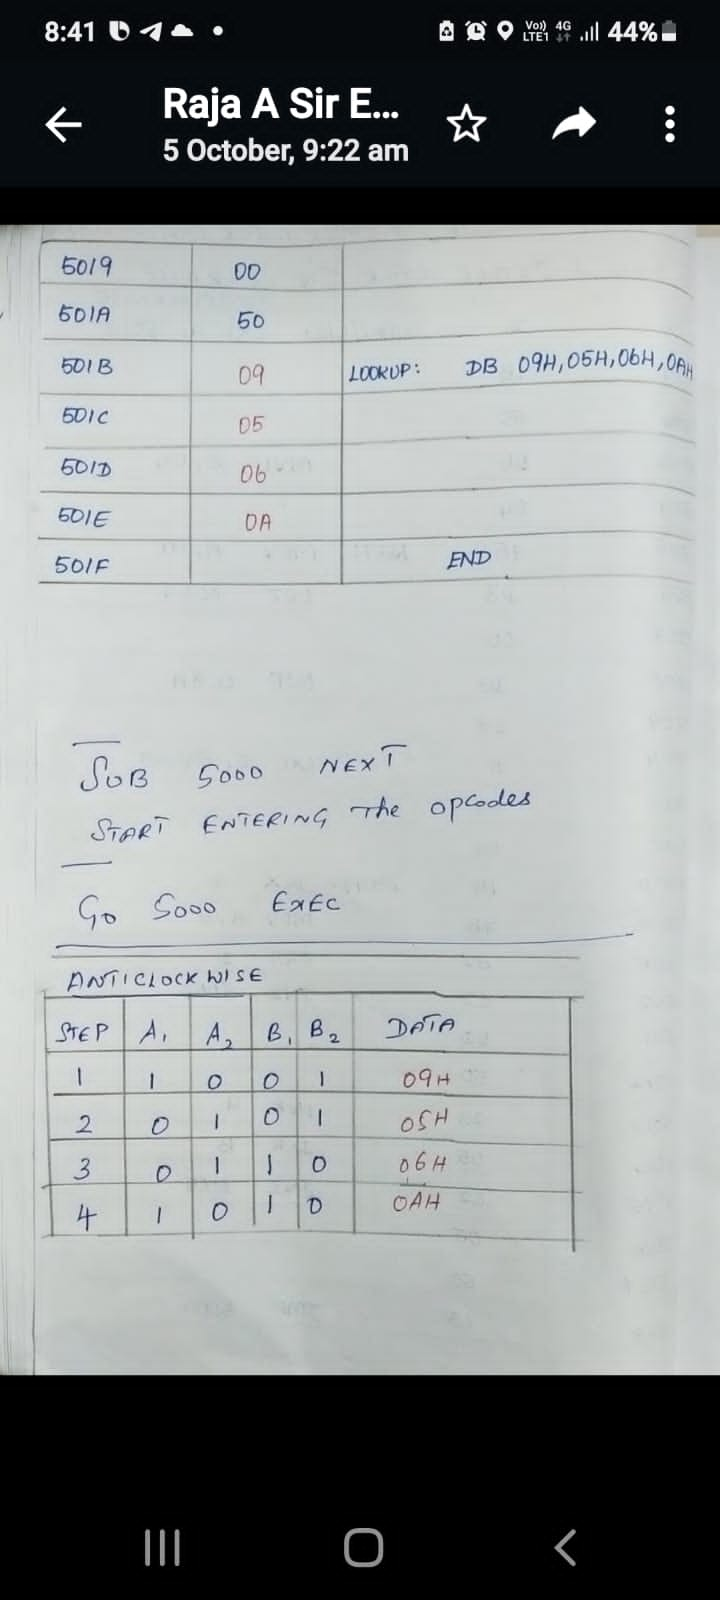 8:41
Vo)) 4G
LTE1
44%
Raja A Sir E...
5 October, 9:22 am
5019 00
501A 50
501B 09 LOOKUP: DB 09H,05H,06H,0AH
501C 05
501D 06
501E 0A
501F END
SUB 5000 NEXT
START ENTERING The opcodes
GO 5000 EXEC
ANTICLOCKWISE
STEP A1 A2 B1 B2 DATA
1 1 0 0 1 09H
2 0 1 0 1 05H
3 0 1 1 0 06H
4 1 0 1 0 0AH